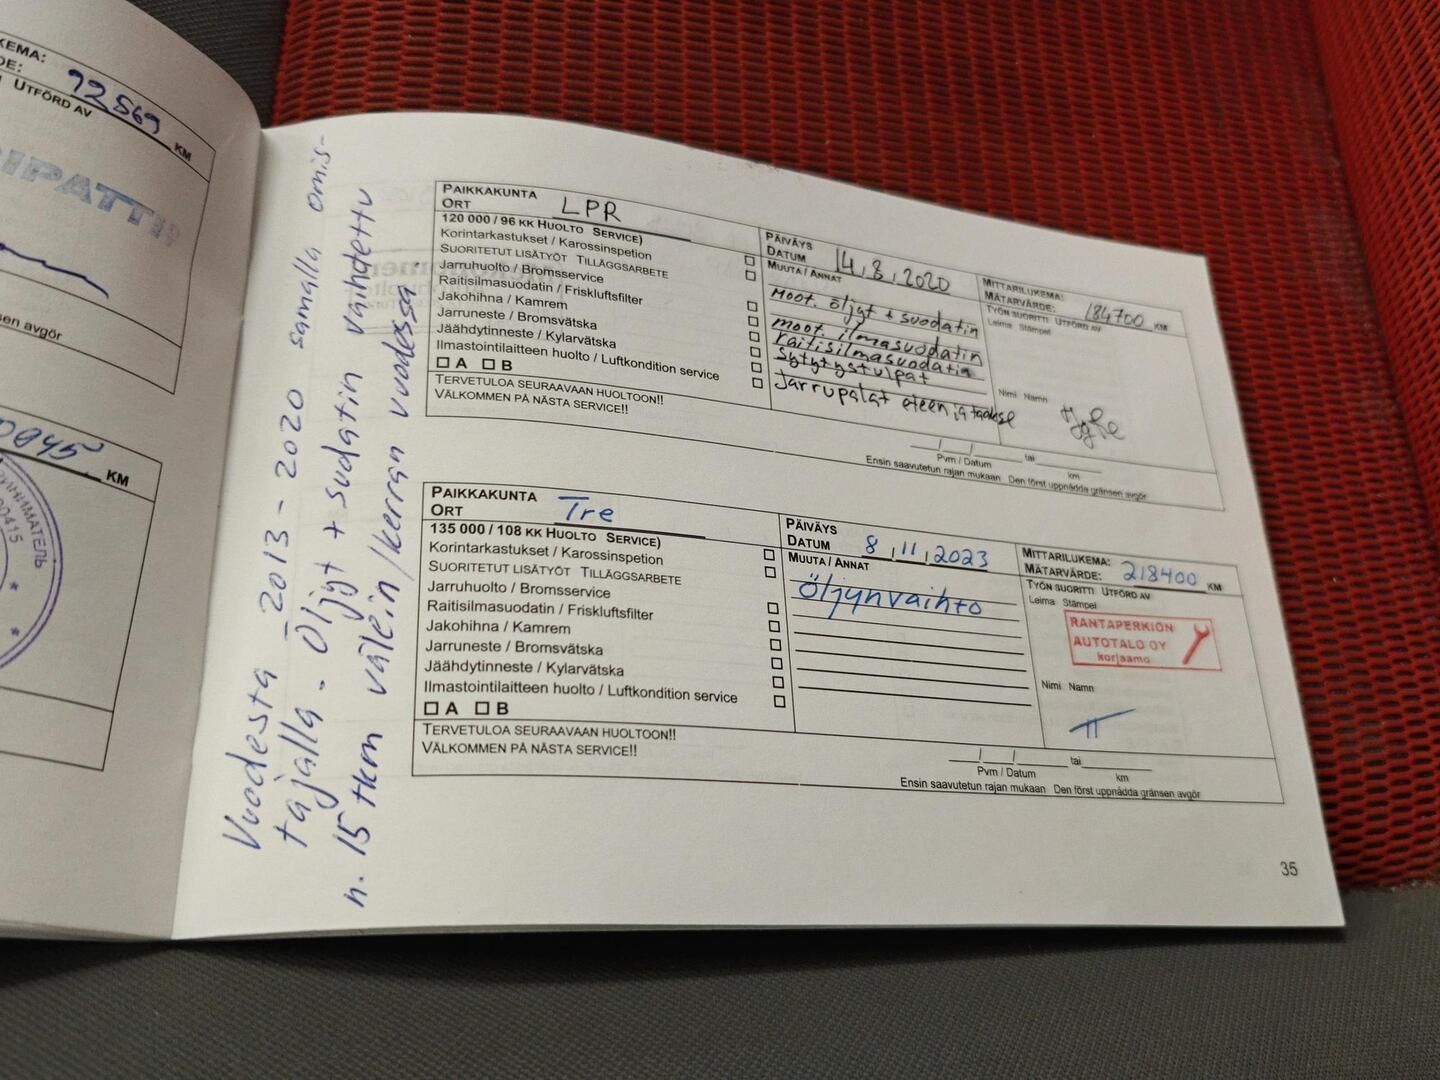 KEMA:
DE:
72569
KM
UTFÖRD AV
IPATTI
sen avgör
KM
Vuodesta 2013-2020 samalla omis-
tajalla. Öljyt + suodatin vaihdettu
n. 15 tkm välein/kerran vuodessa.
PAIKKAKUNTA
ORT LPR
120 000 / 96 KK HUOLTO SERVICE)
Korintarkastukset / Karossinspetion
SUORITETUT LISÄTYÖT TILLÄGGSARBETE
Jarruhuolto / Bromsservice
Raitisilmasuodatin / Friskluftsfilter
Jakohihna / Kamrem
Jarruneste / Bromsvätska
Jäähdytinneste / Kylarvätska
Ilmastointilaitteen huolto / Luftkondition service
A B
TERVETULOA SEURAAVAAN HUOLTOON!!
VÄLKOMMEN PÅ NÄSTA SERVICE!!
PÄIVÄYS
DATUM 14.8.2020
MUUTA / ANNAT
Moot. öljyt + suodatin
moot. ilmasuodatin
raitisilmasuodatin
Sytytystulpat
Jarrupalat eteen ja taakse
MITTARILUKEMA:
MÄTARVÄRDE: 184700 KM
TYÖN SUORITTI UTFÖRD AV
Leima Stämpel
Nimi Namn
/ / tai
Pvm / Datum km
Ensin saavutetun rajan mukaan Den först uppnådda gränsen avgör
PAIKKAKUNTA
ORT Tre
135 000 / 108 KK HUOLTO SERVICE)
Korintarkastukset / Karossinspetion
SUORITETUT LISÄTYÖT TILLÄGGSARBETE
Jarruhuolto / Bromsservice
Raitisilmasuodatin / Friskluftsfilter
Jakohihna / Kamrem
Jarruneste / Bromsvätska
Jäähdytinneste / Kylarvätska
Ilmastointilaitteen huolto / Luftkondition service
A B
TERVETULOA SEURAAVAAN HUOLTOON!!
VÄLKOMMEN PÅ NÄSTA SERVICE!!
PÄIVÄYS
DATUM 8.11.2023
MUUTA / ANNAT
öljynvaihto
MITTARILUKEMA:
MÄTARVÄRDE: 218400 KM
TYÖN SUORITTI UTFÖRD AV
Leima Stämpel
RANTAPERKIÖN
AUTOTALO OY
korjaamo
Nimi Namn
/ / tai
Pvm / Datum km
Ensin saavutetun rajan mukaan Den först uppnådda gränsen avgör
35